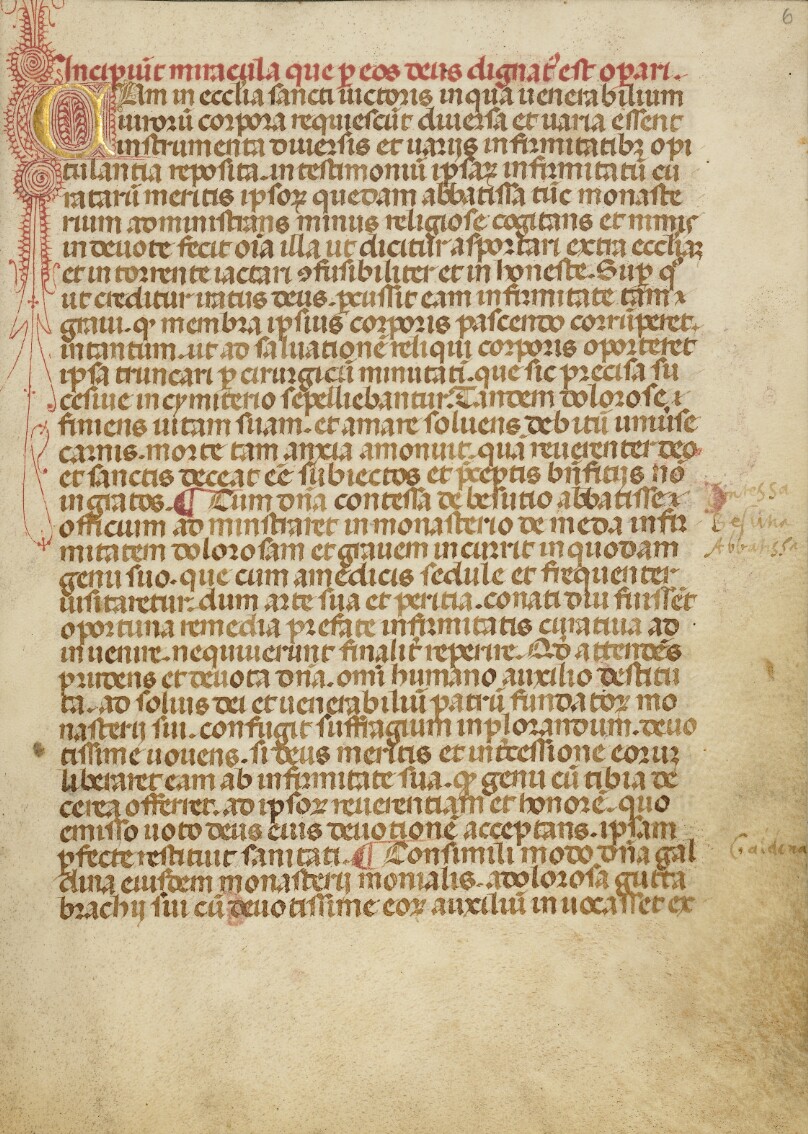 6
Incipiūt miracula que p eos deus dignat' est opari.
CAm in ecclia sancti uictoris in qua uenerabilium
uirorū corpora requiescūt diuersa et uaria essent
instrumenta diuersis et uarijs infirmitatibꝫ opi
tulantia reposita. in testimoniū ipsaꝝ infirmitatū cu
ratarū meritis ipsoꝝ quedam abbatissa tūc monaste
rium administrans minus religiose cogitans et minus
indeuote fecit oīa illa ut dicitur asportari extra eccliaꝫ
et in torrente iactari ꝯfusibiliter et in honeste. Sup q°
ut creditur iratus deus. pcussit eam infirmitate tam
graui. qꝫ membra ipsius corporis pascendo corrūperet.
in tantum. ut ad saluationē reliqui corporis oporteret
ipsa truncari p cirurgicū minutatī. que sic precisa su
cesiue in cymiterio sepelliebantur. Tandem dolorose
finiens uitam suam. et amare soluens debitū uniuse
carnis. morte tam anxia amonuit. quā reuerenter deo
et sanctis deceat eē subiectos et pceptis bn̄fitijs nō
ingratos. ¶ Cum dn̄a contessa de besutio abbatisse
officium ad ministraret in monasterio de meda infir
mitatem dolorosam et grauem incurrit in quodam
genu suo. que cum a medicis sedule et frequenter
uisitaretur. dum arte sua et peritia. conati diu fuissēt
oportuna remedia prefate infirmitatis curatiua ad
inuenire. nequiuerunt finalit' reperire. Qd attendēs
prudens et deuota dn̄a. omī humano auxilio destitu
ta. ad solius dei et uenerabiliū patrū fundatoꝝ mo
nasterij sui. confugit suffragium inplorandum. deuo
tissime uouens. si deus meritis et intcessione eoruꝫ
liberaret eam ab infirmitate sua. qꝫ genu cū tibia de
cerea offerret. ad ipsoꝝ reuerentiam et honorē. quo
emisso uoto deus eius deuotionē acceptans. ipsam
pfecte restituit sanitati. ¶ Consimili modo dn̄a gal
dina eiusdem monasterij monialis. a dolorosa gutta
brachij sui cū deuotissime eoꝝ auxiliū inuocasset ex
Contessa
Besutia
Abbatissa
Galdena